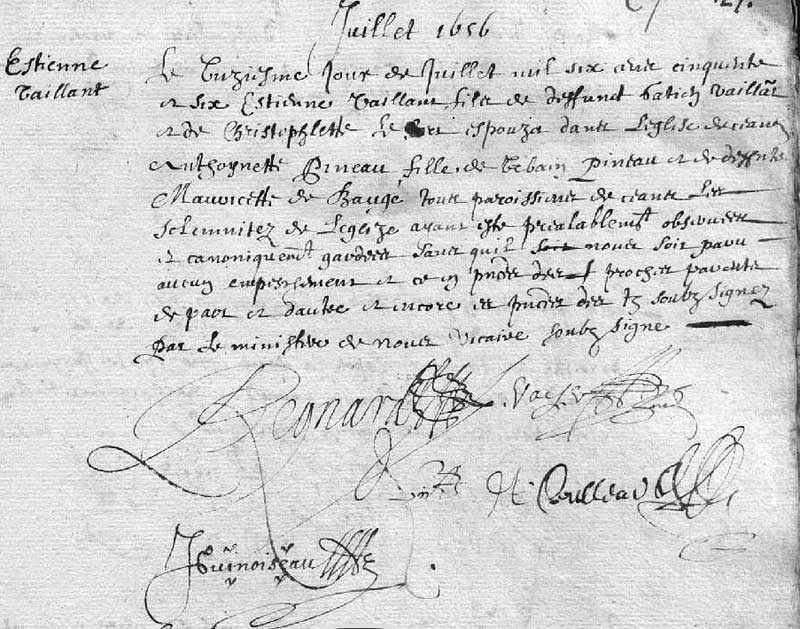 Juillet 1656
Estienne
Vaillant
Le unziesme Jour de Juillet mil six cens cinquente
et six Estienne Vaillant fils de deffunct Gatien Vaillant
et de Christophlette Le espouza dans Leglise de ceans
Anthoynette Pineau fille de Urbain Pineau et de deffuncte
Mauricette de Baugé tous paroissiens de ceans Les
solemnitez de Leglize ayant esté prealablemt observees
et canoniquemt gardees sans quil nous soit paru
aucun empeschement et ce en pnces des proches parents
de part et dautre et encore es pnces des tz soubz signez
par Le ministere de nous vicaire soubz signe
Regnard
Boulleau